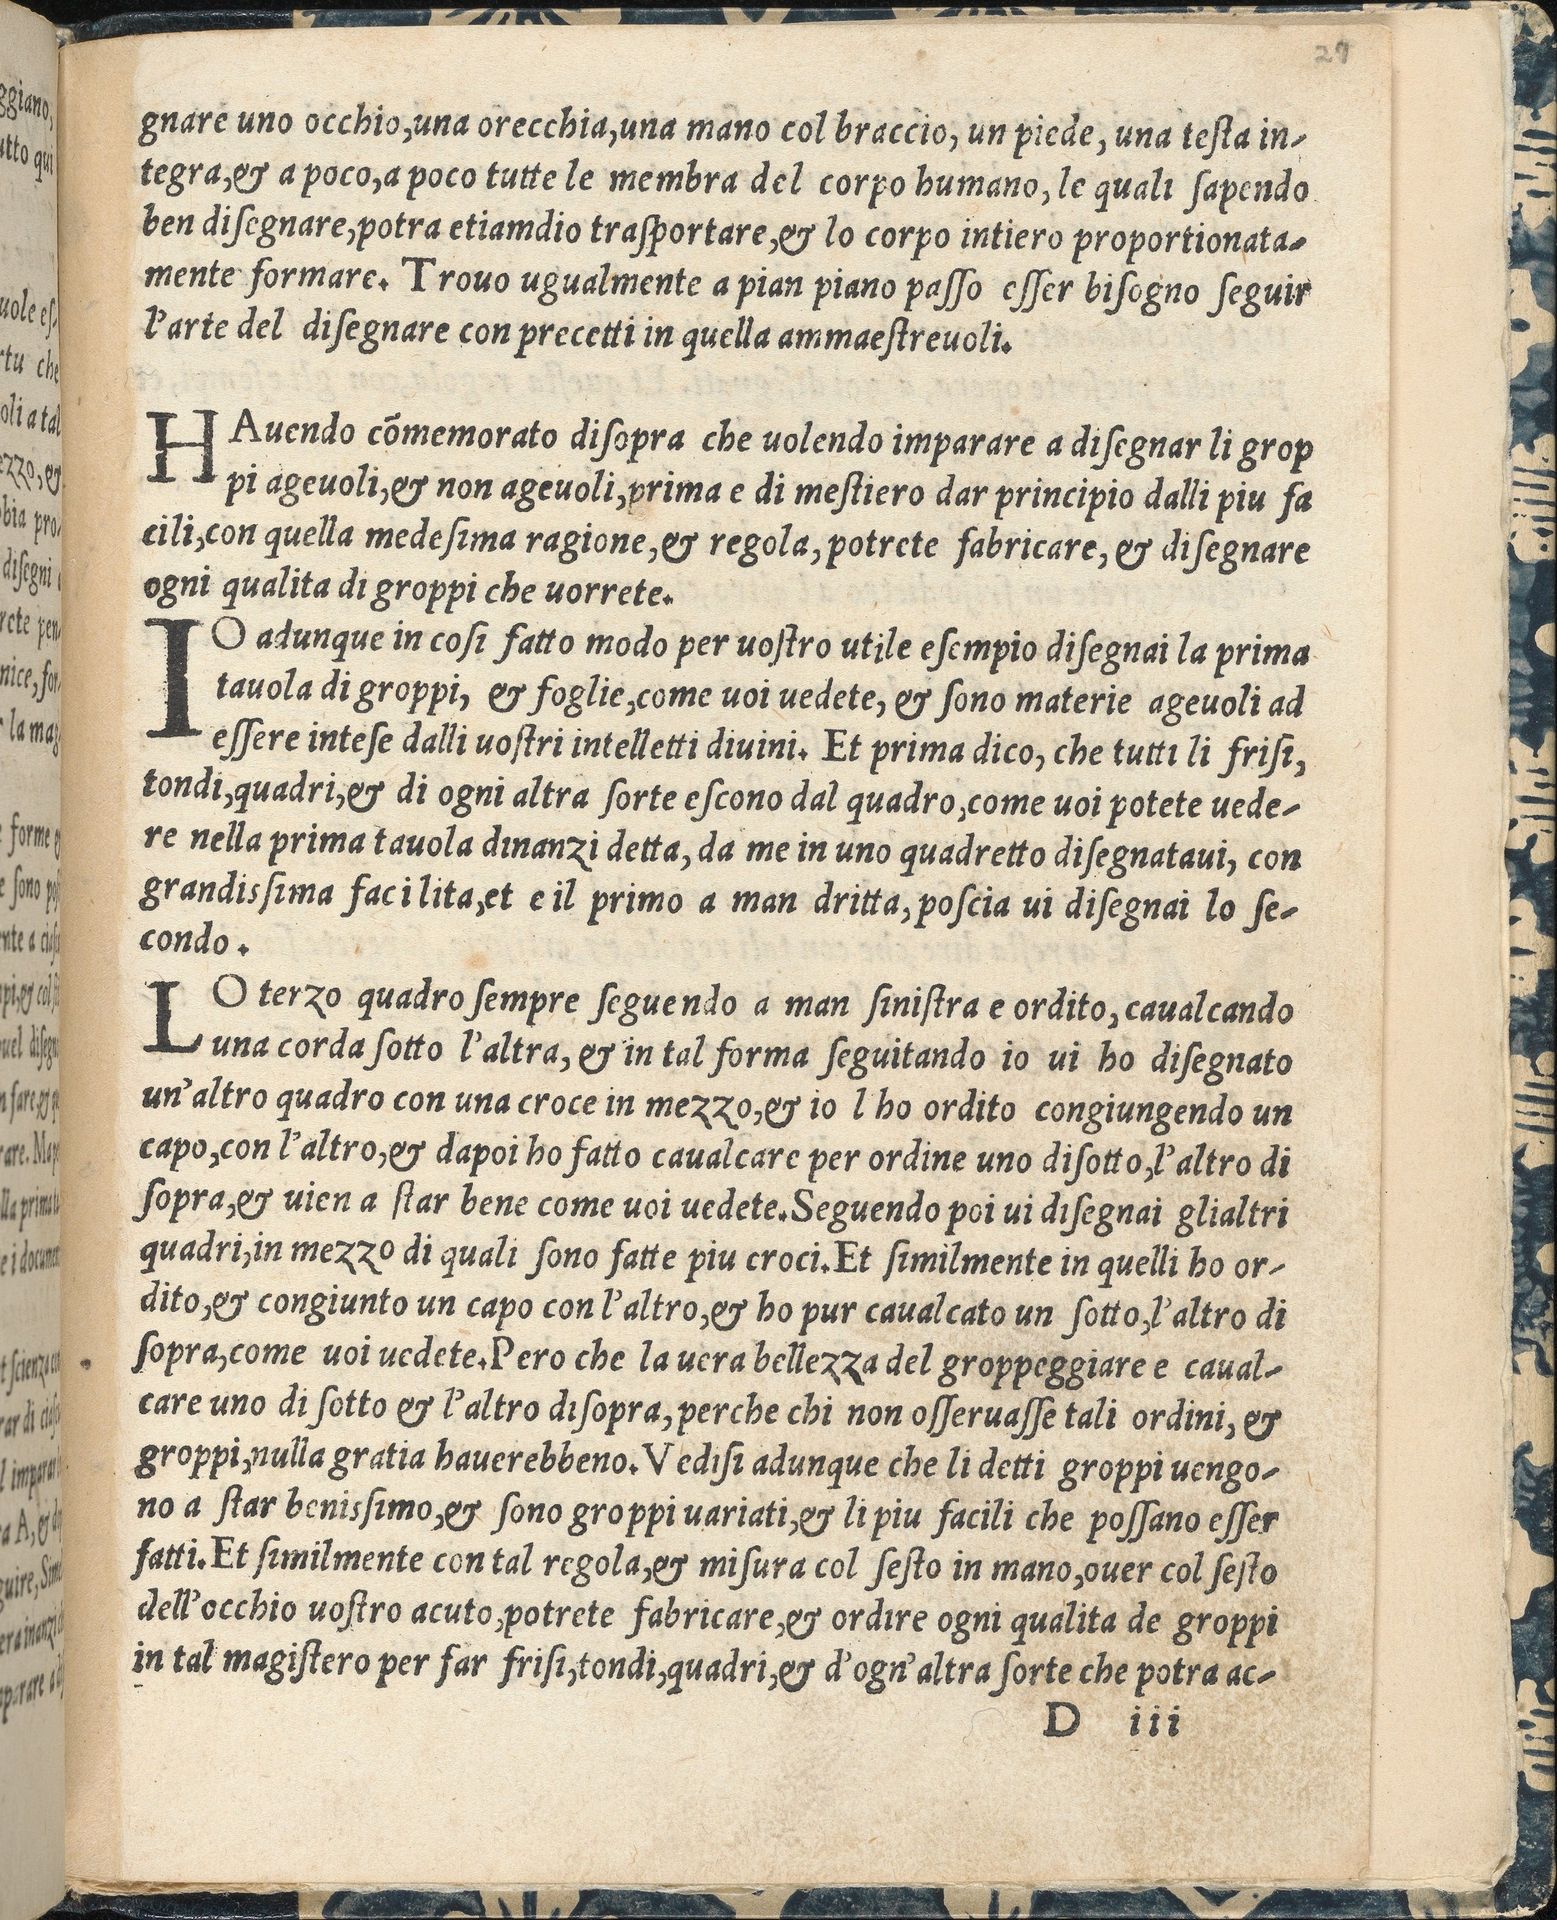 27
gnare uno occhio,una orecchia,una mano col braccio, un piede, una teſta in-
tegra,& a poco,a poco tutte le membra del corpo humano, le quali ſapendo
ben diſegnare,potra etiamdio traſportare,& lo corpo intiero proportionata-
mente formare. Trouo ugualmente a pian piano paſſo eſſer biſogno ſeguir
l'arte del diſegnare con precetti in quella ammaeſtreuoli.
HAuendo cõmemorato diſopra che uolendo imparare a diſegnar li grop
pi ageuoli,& non ageuoli,prima e di meſtiero dar principio dalli piu fa
cili,con quella medeſima ragione,& regola, potrete fabricare, & diſegnare
ogni qualita di groppi che uorrete.
IO adunque in coſi fatto modo per uoſtro utile eſempio diſegnai la prima
tauola di groppi, & foglie,come uoi uedete, & ſono materie ageuoli ad
eſſere inteſe dalli uoſtri intelletti diuini. Et prima dico, che tutti li friſi,
tondi,quadri,& di ogni altra ſorte eſcono dal quadro,come uoi potete uede-
re nella prima tauola dinanzi detta, da me in uno quadretto diſegnataui, con
grandisſima facilita,et e il primo a man dritta, poſcia ui diſegnai lo ſe-
condo.
LO terzo quadro ſempre ſeguendo a man ſiniſtra e ordito, caualcando
una corda ſotto l'altra, & in tal forma ſeguitando io ui ho diſegnato
un'altro quadro con una croce in mezzo,& io l ho ordito congiungendo un
capo,con l'altro,& dapoi ho fatto caualcare per ordine uno diſotto,l'altro di
ſopra,& uien a ſtar bene come uoi uedete.Seguendo poi ui diſegnai glialtri
quadri,in mezzo di quali ſono fatte piu croci.Et ſimilmente in quelli ho or-
dito,& congiunto un capo con l'altro,& ho pur caualcato un ſotto,l'altro di
ſopra,come uoi uedete.Pero che la uera bellezza del groppeggiare e caual-
care uno di ſotto & l'altro diſopra, perche chi non oſſeruaſſe tali ordini, &
groppi,nulla gratia hauerebbeno.Vediſi adunque che li detti groppi uengo-
no a ſtar benisſimo,& ſono groppi uariati,& li piu facili che poſſano eſſer
fatti.Et ſimilmente con tal regola,& miſura col ſeſto in mano,ouer col ſeſto
dell'occhio uoſtro acuto,potrete fabricare,& ordire ogni qualita de groppi
in tal magiſtero per far friſi,tondi,quadri,& d'ogn'altra ſorte che potra ac-
D iii